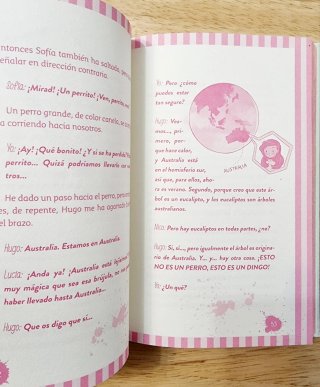 ntonces Sofía también ha saltado,
eñalar en dirección contraria.
Sofía: ¡Mirad! ¡Un perrito! ¡Ven, perrito,
Un perro grande, de color canela, se
a corriendo hacia nosotros.
Yo: ¡Ay! ¡Qué bonito! ¿Y si se ha perdido?
perrito... Quizá podríamos llevarlo con
tros...
He dado un paso hacia el perro, pero
es, de repente, Hugo me ha agarrado
el brazo.
Hugo: Australia. Estamos en Australia.
Lucía: ¡Anda ya! ¡Australia está
muy mágica que sea esa brújula, no
haber llevado hasta Australia...
Hugo: Que os digo que sí...
Yo: Pero ¿cómo
puedes estar
tan seguro?
Hugo: Vea-
mos...; pri-
mero, por-
que hace calor,
y Australia está
en el hemisferio sur,
así que, para ellos, aho-
ra es verano. Segundo, porque creo que este ár-
bol es un eucalipto, y los eucaliptos son árboles
australianos.
AUSTRALIA
Nico: Pero hay eucaliptos en todas partes, ¿no?
Hugo: Sí, sí..., pero igualmente el árbol es origina-
rio de Australia. Y... y... hay otra cosa. ¡ESTO
NO ES UN PERRO, ESTO ES UN DINGO!
Yo: ¿Un qué?
55